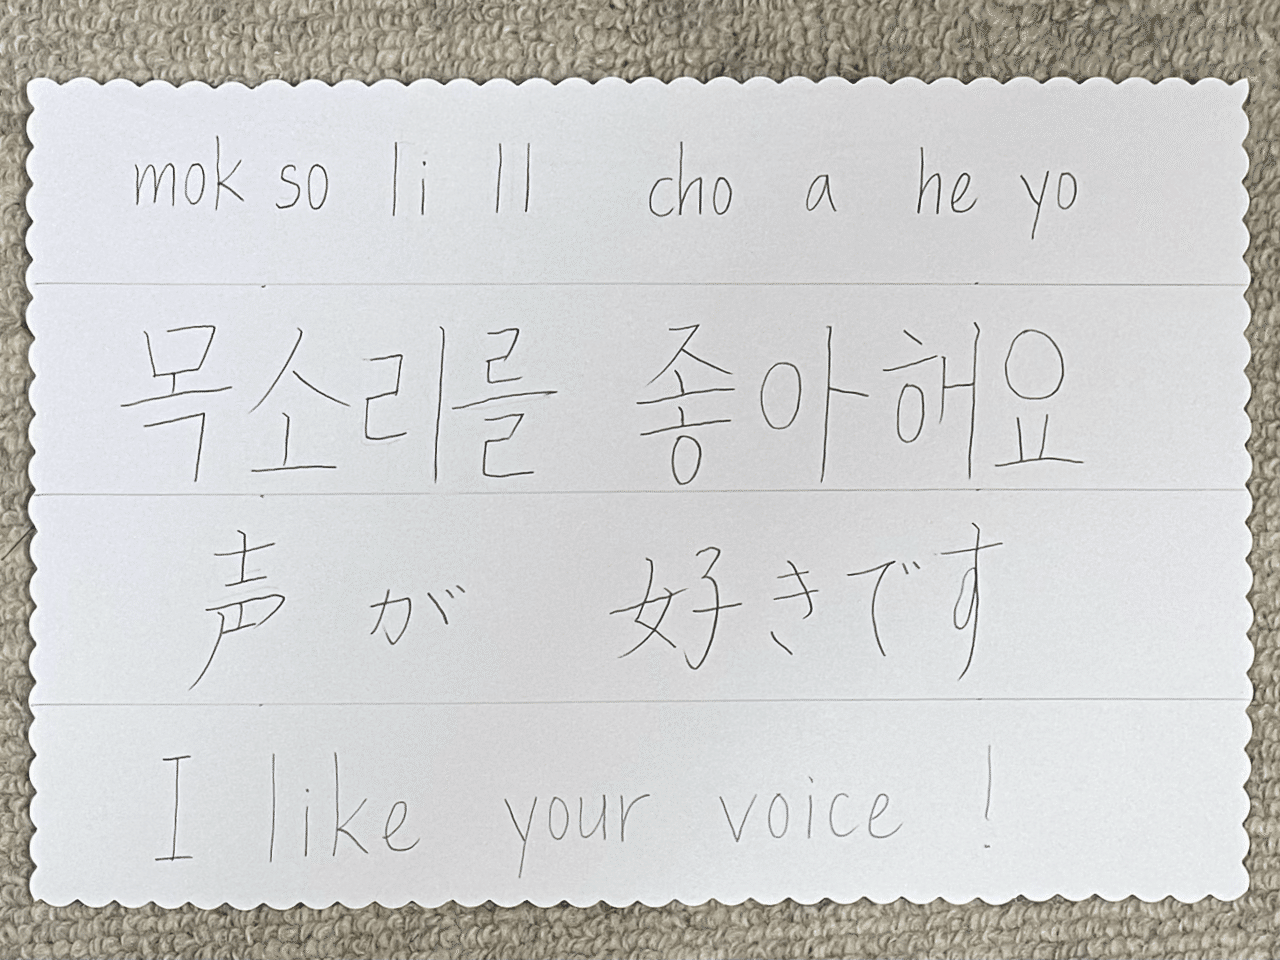 mok so li ll cho a he yo
목소리를 좋아해요
声が 好きです
I like your voice !